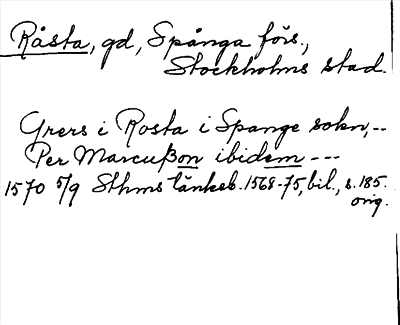 Råsta, gd, Spånga förs.,
Stockholms stad.
Grers i Rosta i Spange sokn,--
Per Marcußon ibidem ---
1570 5/9 Sthms tänkeb. 1568-75, bil., s. 185.
orig.